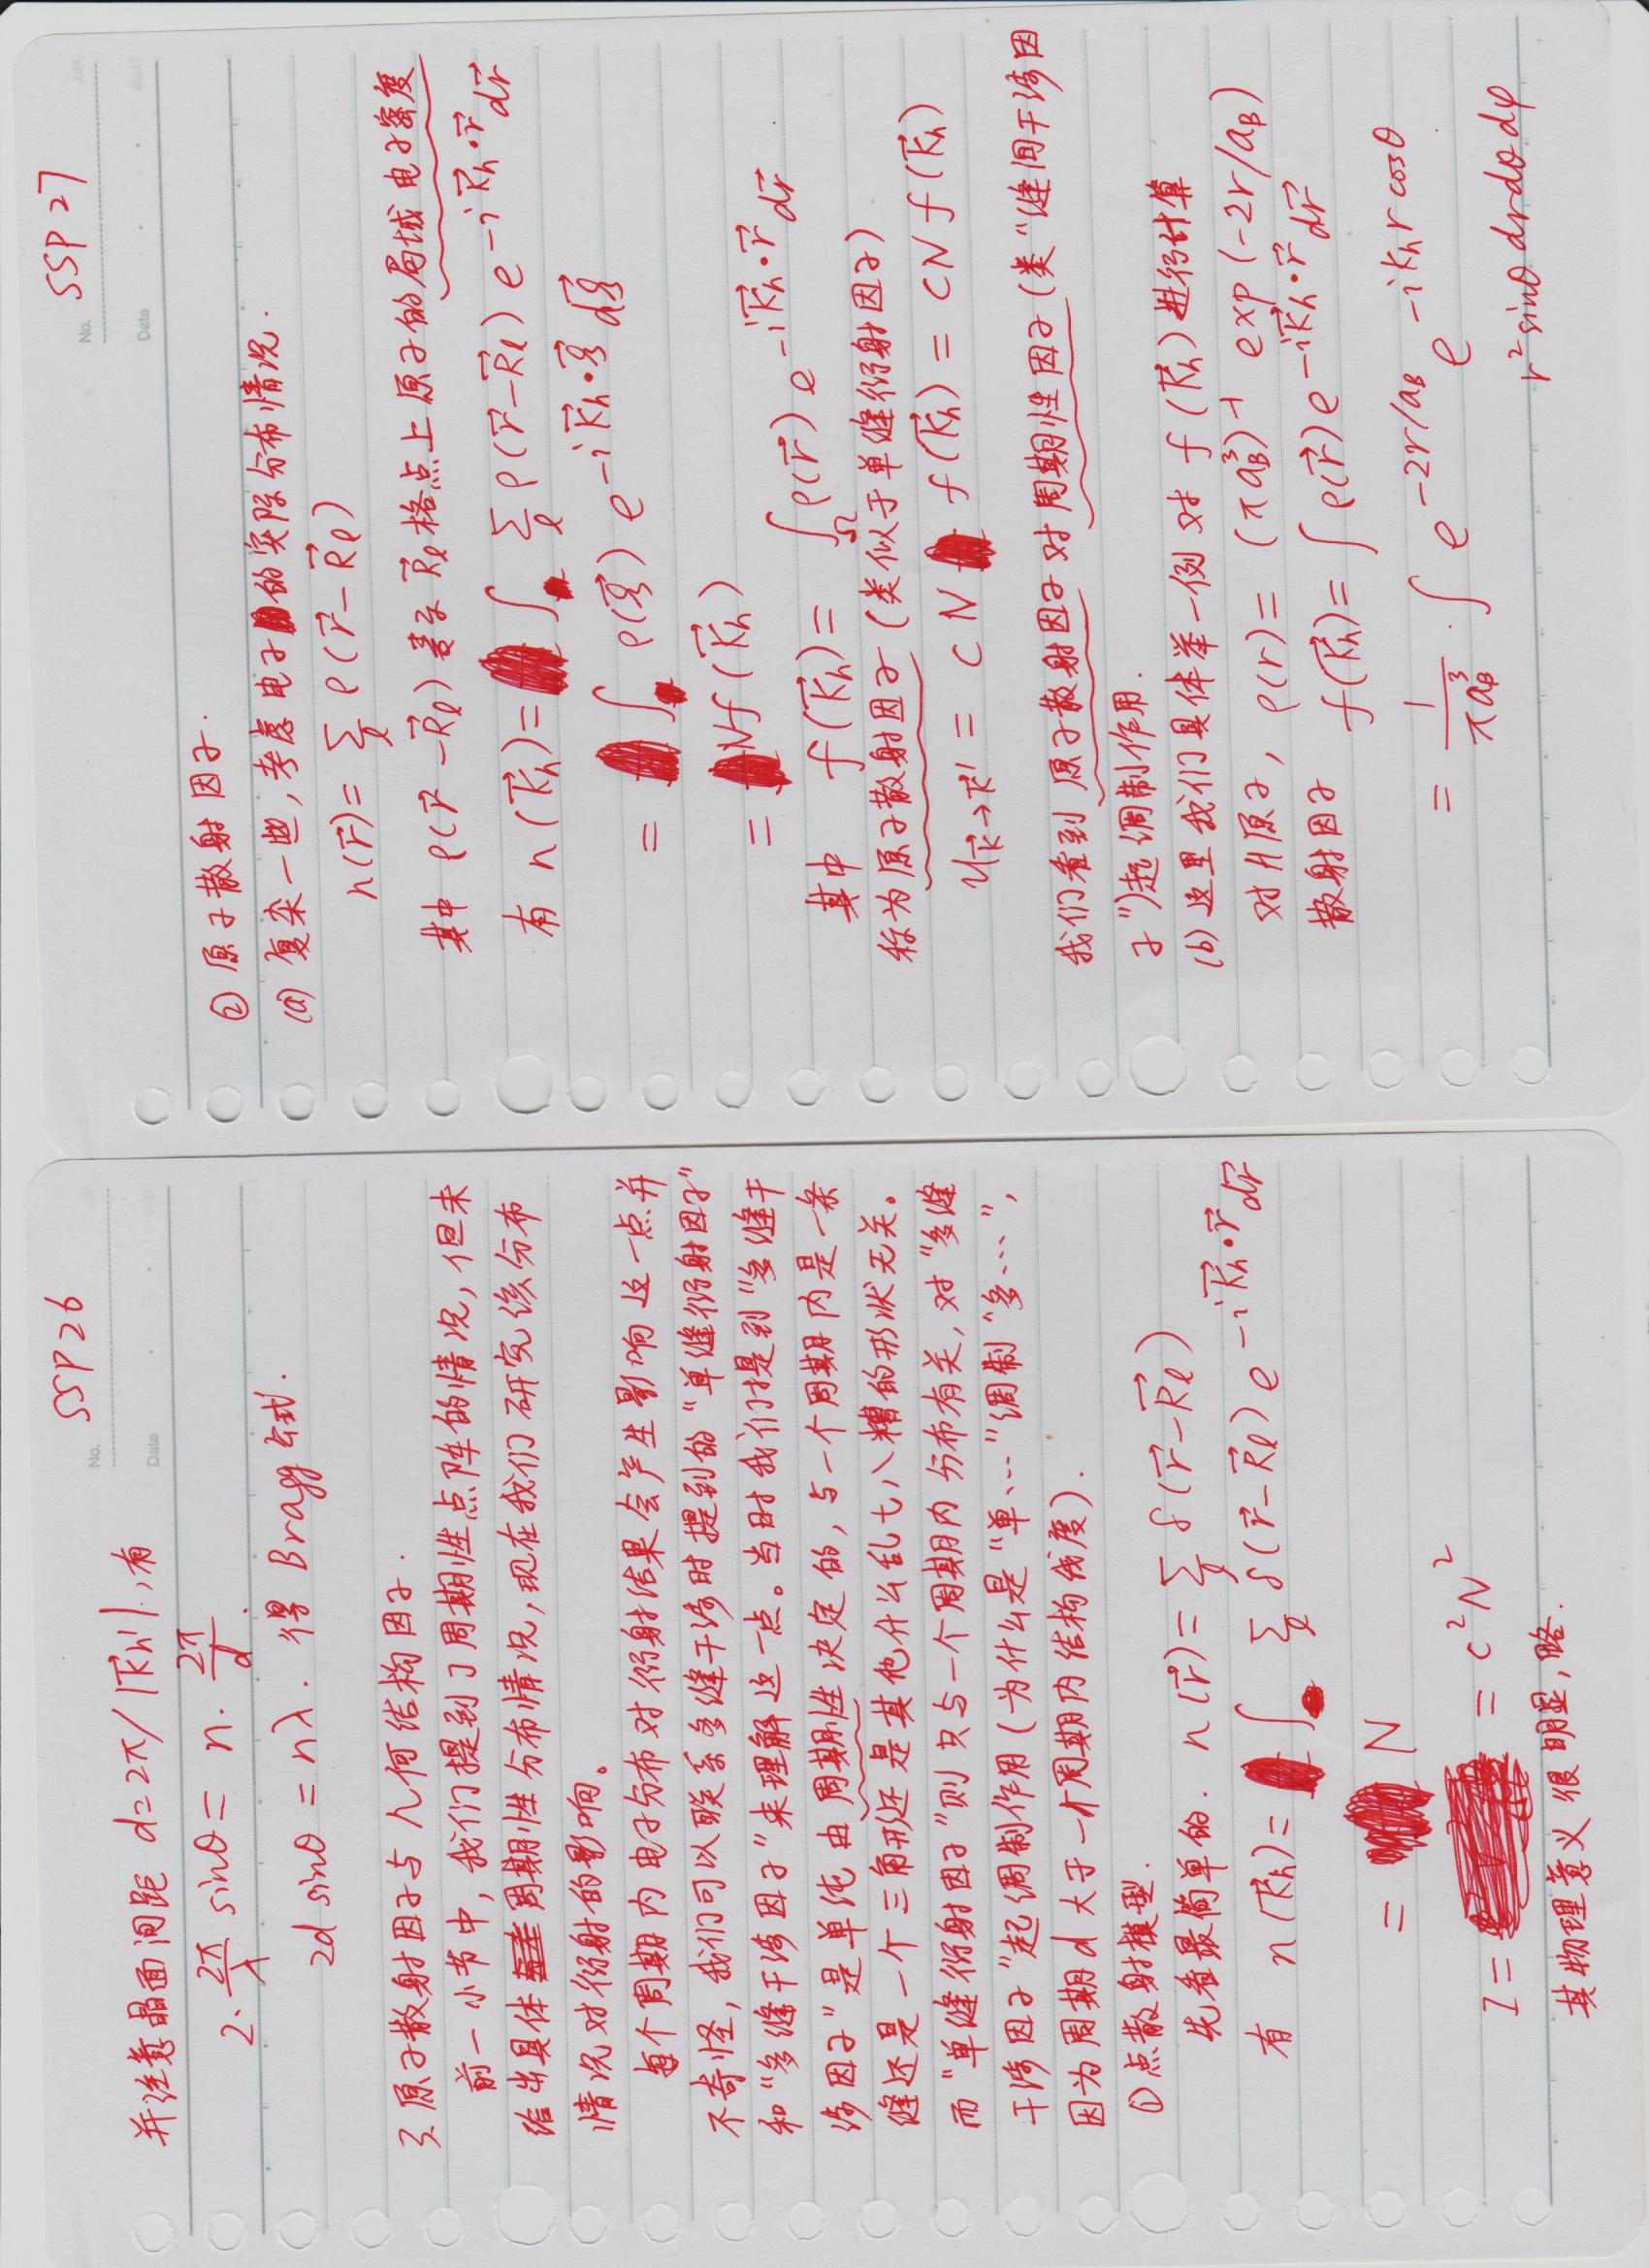 SSP 26
No.
Date
并注意晶面间距 d=2π/|K⃗h'|,有
2·2π/λ sinθ = n·2π/d.
2d sinθ = nλ. 得 Bragg 公式.
3.原子散射因子与几何结构因子.
前一小节中,我们提到了周期性点阵的情况,但未
给出具体周期性分布情况,现在我们研究该分布
情况对衍射的影响。
每个周期内电子分布对衍射结果会产生影响这一点并
不奇怪,我们可以联系多缝干涉时提到的“单缝衍射因子”
和“多缝干涉因子”来理解这一点。当时我们提到“多缝干
涉因子”是单纯由周期性决定的,与一个周期内是一条
缝还是一个三角形还是其他什么乱七八糟的形状无关。
而“单缝衍射因子”则只与一个周期内分布有关,对“多缝
干涉因子”起调制作用(为什么是“单…”调制“多…”,
因为周期d大于一个周期内结构线度).
①点散射模型.
先看最简单的. n(r⃗)= Σ_l δ(r⃗-R⃗l)
有 n(K⃗h)= ∫ Σ_l δ(r⃗-R⃗l) e^{-iK⃗h·r⃗} dr⃗
= N
I = = c²N²
其物理意义很明显,略.
SSP 27
No.
Date
② 原子散射因子.
(a) 复杂一些,考虑电子的实际分布情况.
n(r⃗)= Σ_l ρ(r⃗-R⃗l)
其中 ρ(r⃗-R⃗l) 表示 R⃗l 格点上原子的局域电子密度
有 n(K⃗h)= ∫ Σ_l ρ(r⃗-R⃗l) e^{-iK⃗h·r⃗} dr⃗
= ∫ ρ(ξ⃗) e^{-iK⃗h·ξ⃗} dξ⃗
= Nf(K⃗h)
其中 f(K⃗h)= ∫_Ω ρ(r⃗) e^{-iK⃗h·r⃗} dr⃗
称为原子散射因子(类似于单缝衍射因子)
u_{k⃗→k⃗'} = cN f(K⃗h) = cNf(K⃗h)
我们看到原子散射因子对周期性因子(类“缝间干涉因
子”)起调制作用.
(b) 这里我们具体举一例对 f(K⃗h) 进行计算
对H原子, ρ(r)= (πa_B³)⁻¹ exp(-2r/a_B)
散射因子 f(K⃗h)= ∫ρ(r⃗)e^{-iK⃗h·r⃗} dr⃗
= 1/(πa_B³) · ∫ e^{-2r/a_B} e^{-iKh r cosθ}
r² sinθ dr dθ dφ